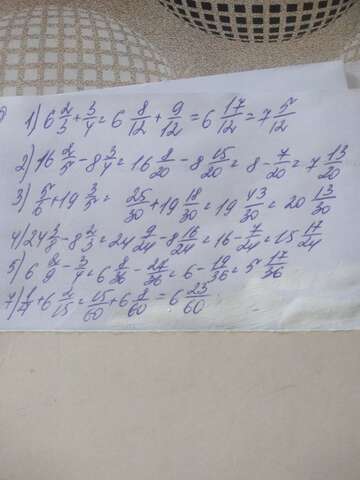 1) 6 2/3 + 3/4 = 6 8/12 + 9/12 = 6 17/12 = 7 5/12
2) 16 2/5 - 8 3/4 = 16 8/20 - 8 15/20 = 8 - 7/20 = 7 13/20
3) 5/6 + 19 3/5 = 25/30 + 19 18/30 = 19 43/30 = 20 13/30
4) 24 3/8 - 8 2/3 = 24 9/24 - 8 16/24 = 16 - 7/24 = 15 17/24
5) 6 2/9 - 3/4 = 6 8/36 - 27/36 = 6 - 19/36 = 5 17/36
7) 1/4 + 6 2/15 = 15/60 + 6 8/60 = 6 23/60